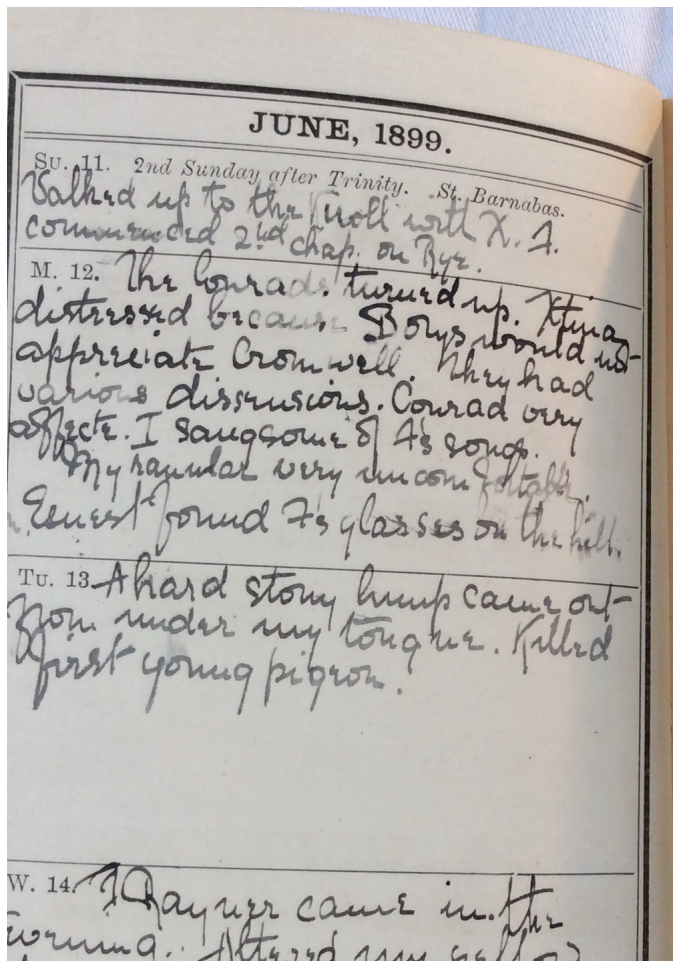 JUNE, 1899.
SU. 11. 2nd Sunday after Trinity. St. Barnabas.
Walked up to the Knoll with X. F.
commenced 2nd chap. on Rye.
M. 12. The Conrads turned up. Xtina
distressed because Borys would not
appreciate Cromwell. They had
various dissensions. Conrad very
affecte. I sang some of F's songs.
My ranular very uncomfortable.
Ernest found F's glasses on the hill.
TU. 13. A hard stony lump came out
from under my tongue. Killed
first young pigeon.
W. 14. Rayner came in the
Altered my